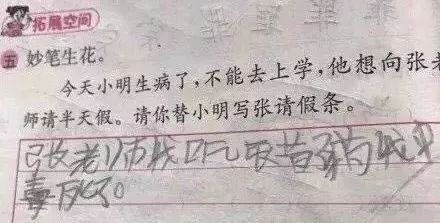 拓展空间
五 妙笔生花。
今天小明生病了，不能去上学，他想向张老
师请半天假。请你替小明写张请假条。
张老师我吃
毒死了。